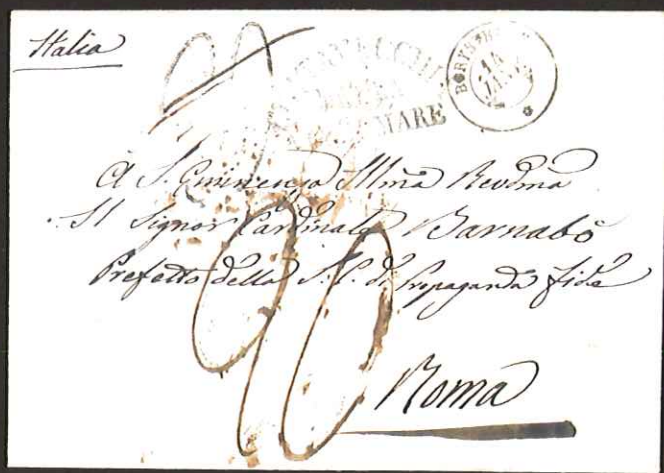 Italia
14
JANV
MARE
A S. Eminenza Illma Revdma
Il Signor Cardinale Barnabò
Prefetto della S. C. di Propaganda fide
90
Roma